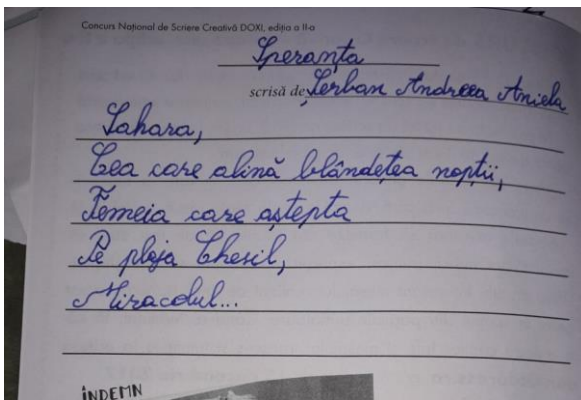 Concurs Național de Scriere Creativă DOXI, ediția a II-a
Speranța
scrisă de Șerban Andreea Aniela
Sahara,
Cea care alină blândețea nopții,
Femeia care aștepta
Pe plaja Chesil,
Miracolul...
ÎNDEMN